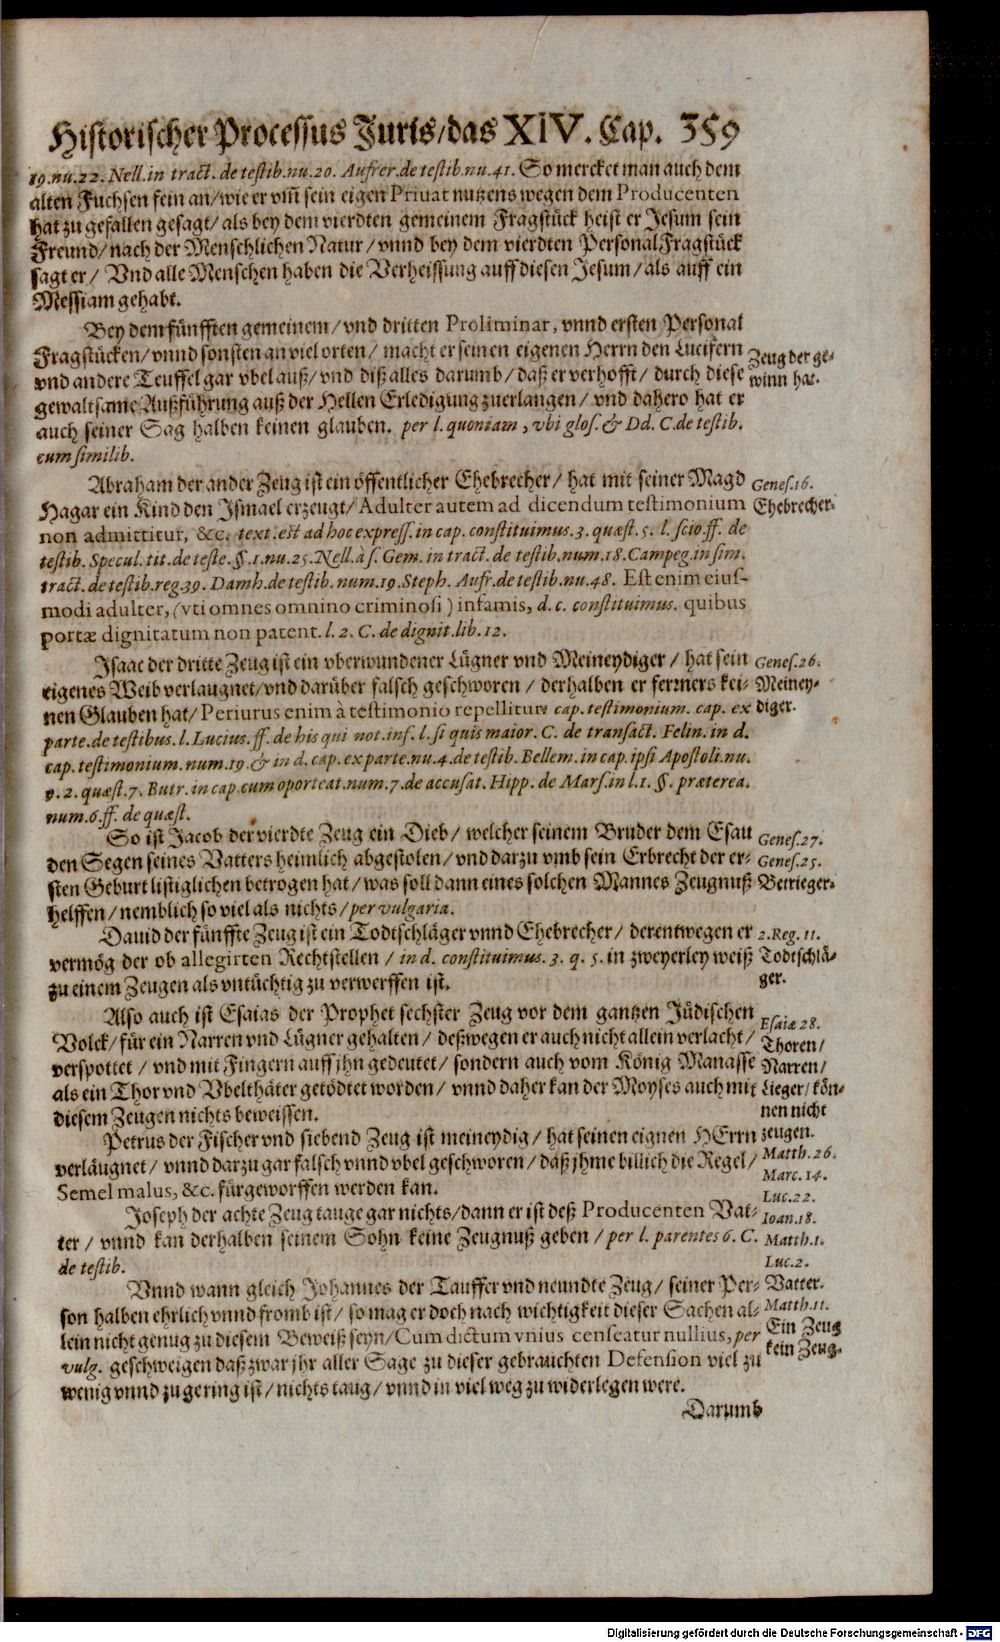 Historischer Processus Juris/das XIV. Cap. 359
19.nu.22. Nell.in tract. de testib.nu.20. Aufrer.de testib.nu.41. So mercket man auch dem
alten Fuchsen fein an/wie er vm̃ sein eigen Priuat nutzens wegen dem Producenten
hat zu gefallen gesagt/als bey dem vierdten gemeinem Fragstück heist er Jesum sein
Freund/nach der Menschlichen Natur/vnnd bey dem vierdten Personal Fragstück
sagt er/ Vnd alle Menschen haben die Verheissung auff diesen Jesum/als auff ein
Messiam gehabt.
Bey dem fünfften gemeinem/vnd dritten Proliminar, vnnd ersten Personal
Fragstücken/vnnd sonsten an viel orten/ macht er seinen eigenen Herrn den Lucifern
vnd andere Teuffel gar vbel auß/vnd diß alles darumb/daß er verhofft/ durch diese
gewaltsame Außführung auß der Hellen Erledigung zuerlangen/ vnd dahero hat er
auch seiner Sag halben keinen glauben. per l. quoniam, vbi glos. & Dd. C.de testib.
cum similib.
Zeug der ge-
winn hat.
Abraham der ander Zeug ist ein öffentlicher Ehebrecher/ hat mit seiner Magd
Hagar ein Kind den Ismael erzeugt/Adulter autem ad dicendum testimonium
non admittitur, &c. text.est ad hoc express.in cap. constituimus.3. quæst.5. l. scio.ff. de
testib. Specul.tit.de teste.§.1.nu.25.Nell.à s. Gem.in tract. de testib.num.18.Campeg.in sim.
tract.de testib.reg.39. Damh.de testib.num.19.Steph. Aufr.de testib.nu.48. Est enim eius-
modi adulter, (vti omnes omnino criminosi) infamis, d. c. constituimus. quibus
portæ dignitatum non patent. l. 2. C. de dignit.lib.12.
Genes.16.
Ehebrecher.
Isaac der dritte Zeug ist ein vberwundener Lügner vnd Meineydiger/ hat sein
eigenes Weib verlaugnet/vnd darüber falsch geschworen/ derhalben er ferrners kei-
nen Glauben hat/Periurus enim à testimonio repellitur. cap.testimonium. cap. ex
parte.de testibus.l.Lucius.ff.de his qui not.inf. l.si quis maior. C. de transact. Felin. in d.
cap.testimonium.num.19.& in d. cap. ex parte.nu.4.de testib. Bellem.in cap.ipsi Apostoli.nu.
v.2.quæst.7. Butr. in cap.cum oporteat.num.7.de accusat. Hipp. de Mars.in l.1. §. præterea.
num.6.ff. de quæst.
Genes.26.
Meiney-
diger.
So ist Jacob der vierdte Zeug ein Dieb/ welcher seinem Bruder dem Esau
den Segen seines Vatters heimlich abgestolen/vnd darzu vmb sein Erbrecht der er-
sten Geburt listiglichen betrogen hat/was soll dann eines solchen Mannes Zeugnuß
helffen/nemblich so viel als nichts/per vulgaria.
Genes.27.
Genes.25.
Betrieger.
Dauid der fünffte Zeug ist ein Todtschläger vnnd Ehebrecher/ derentwegen er
vermög der ob allegirten Rechtstellen/in d. constituimus. 3. q. 5. in zweyerley weiß
zu einem Zeugen als vntüchtig zu verwerffen ist.
2.Reg.11.
Todtschlä-
ger.
Also auch ist Esaias der Prophet sechster Zeug vor dem gantzen Jüdischen
Volck/für ein Narren vnd Lügner gehalten/ deßwegen er auch nicht allein verlacht/
verspottet/ vnd mit Fingern auff jhn gedeutet/ sondern auch vom König Manasse
als ein Thor vnd Vbelthäter getödtet worden/ vnnd daher kan der Moyses auch mit
diesem Zeugen nichts beweissen.
Esaiæ 28.
Thoren/
Narren/
Lieger/kön-
nen nicht
zeugen.
Petrus der Fischer vnd siebend Zeug ist meineydig/ hat seinen eignen HErrn
verläugnet/ vnnd darzu gar falsch vnnd vbel geschworen/ daß jhme billich die Regel/
Semel malus, &c. fürgeworffen werden kan.
Matth.26.
Marc.14.
Luc.22.
Ioan.18.
Joseph der achte Zeug tauge gar nichts/dann er ist deß Producenten Vat-
ter/ vnnd kan derhalben seinem Sohn keine Zeugnuß geben/ per l. parentes 6. C.
de testib.
Matth.1.
Luc.2.
Vatter.
Vnnd wann gleich Johannes der Tauffer vnd neundte Zeug/ seiner Per-
son halben ehrlich vnnd fromb ist/ so mag er doch nach wichtigkeit dieser Sachen al-
lein nicht genug zu diesem Beweiß seyn/Cum dictum vnius censeatur nullius, per
vulg. geschweigen daß zwar jhr aller Sage zu dieser gebrauchten Defension viel zu
wenig vnnd zu gering ist/ nichts taug/ vnnd in viel weg zu widerlegen were.
Matth.11.
Ein Zeug
kein Zeug.
Darumb
Digitalisierung gefördert durch die Deutsche Forschungsgemeinschaft - DFG